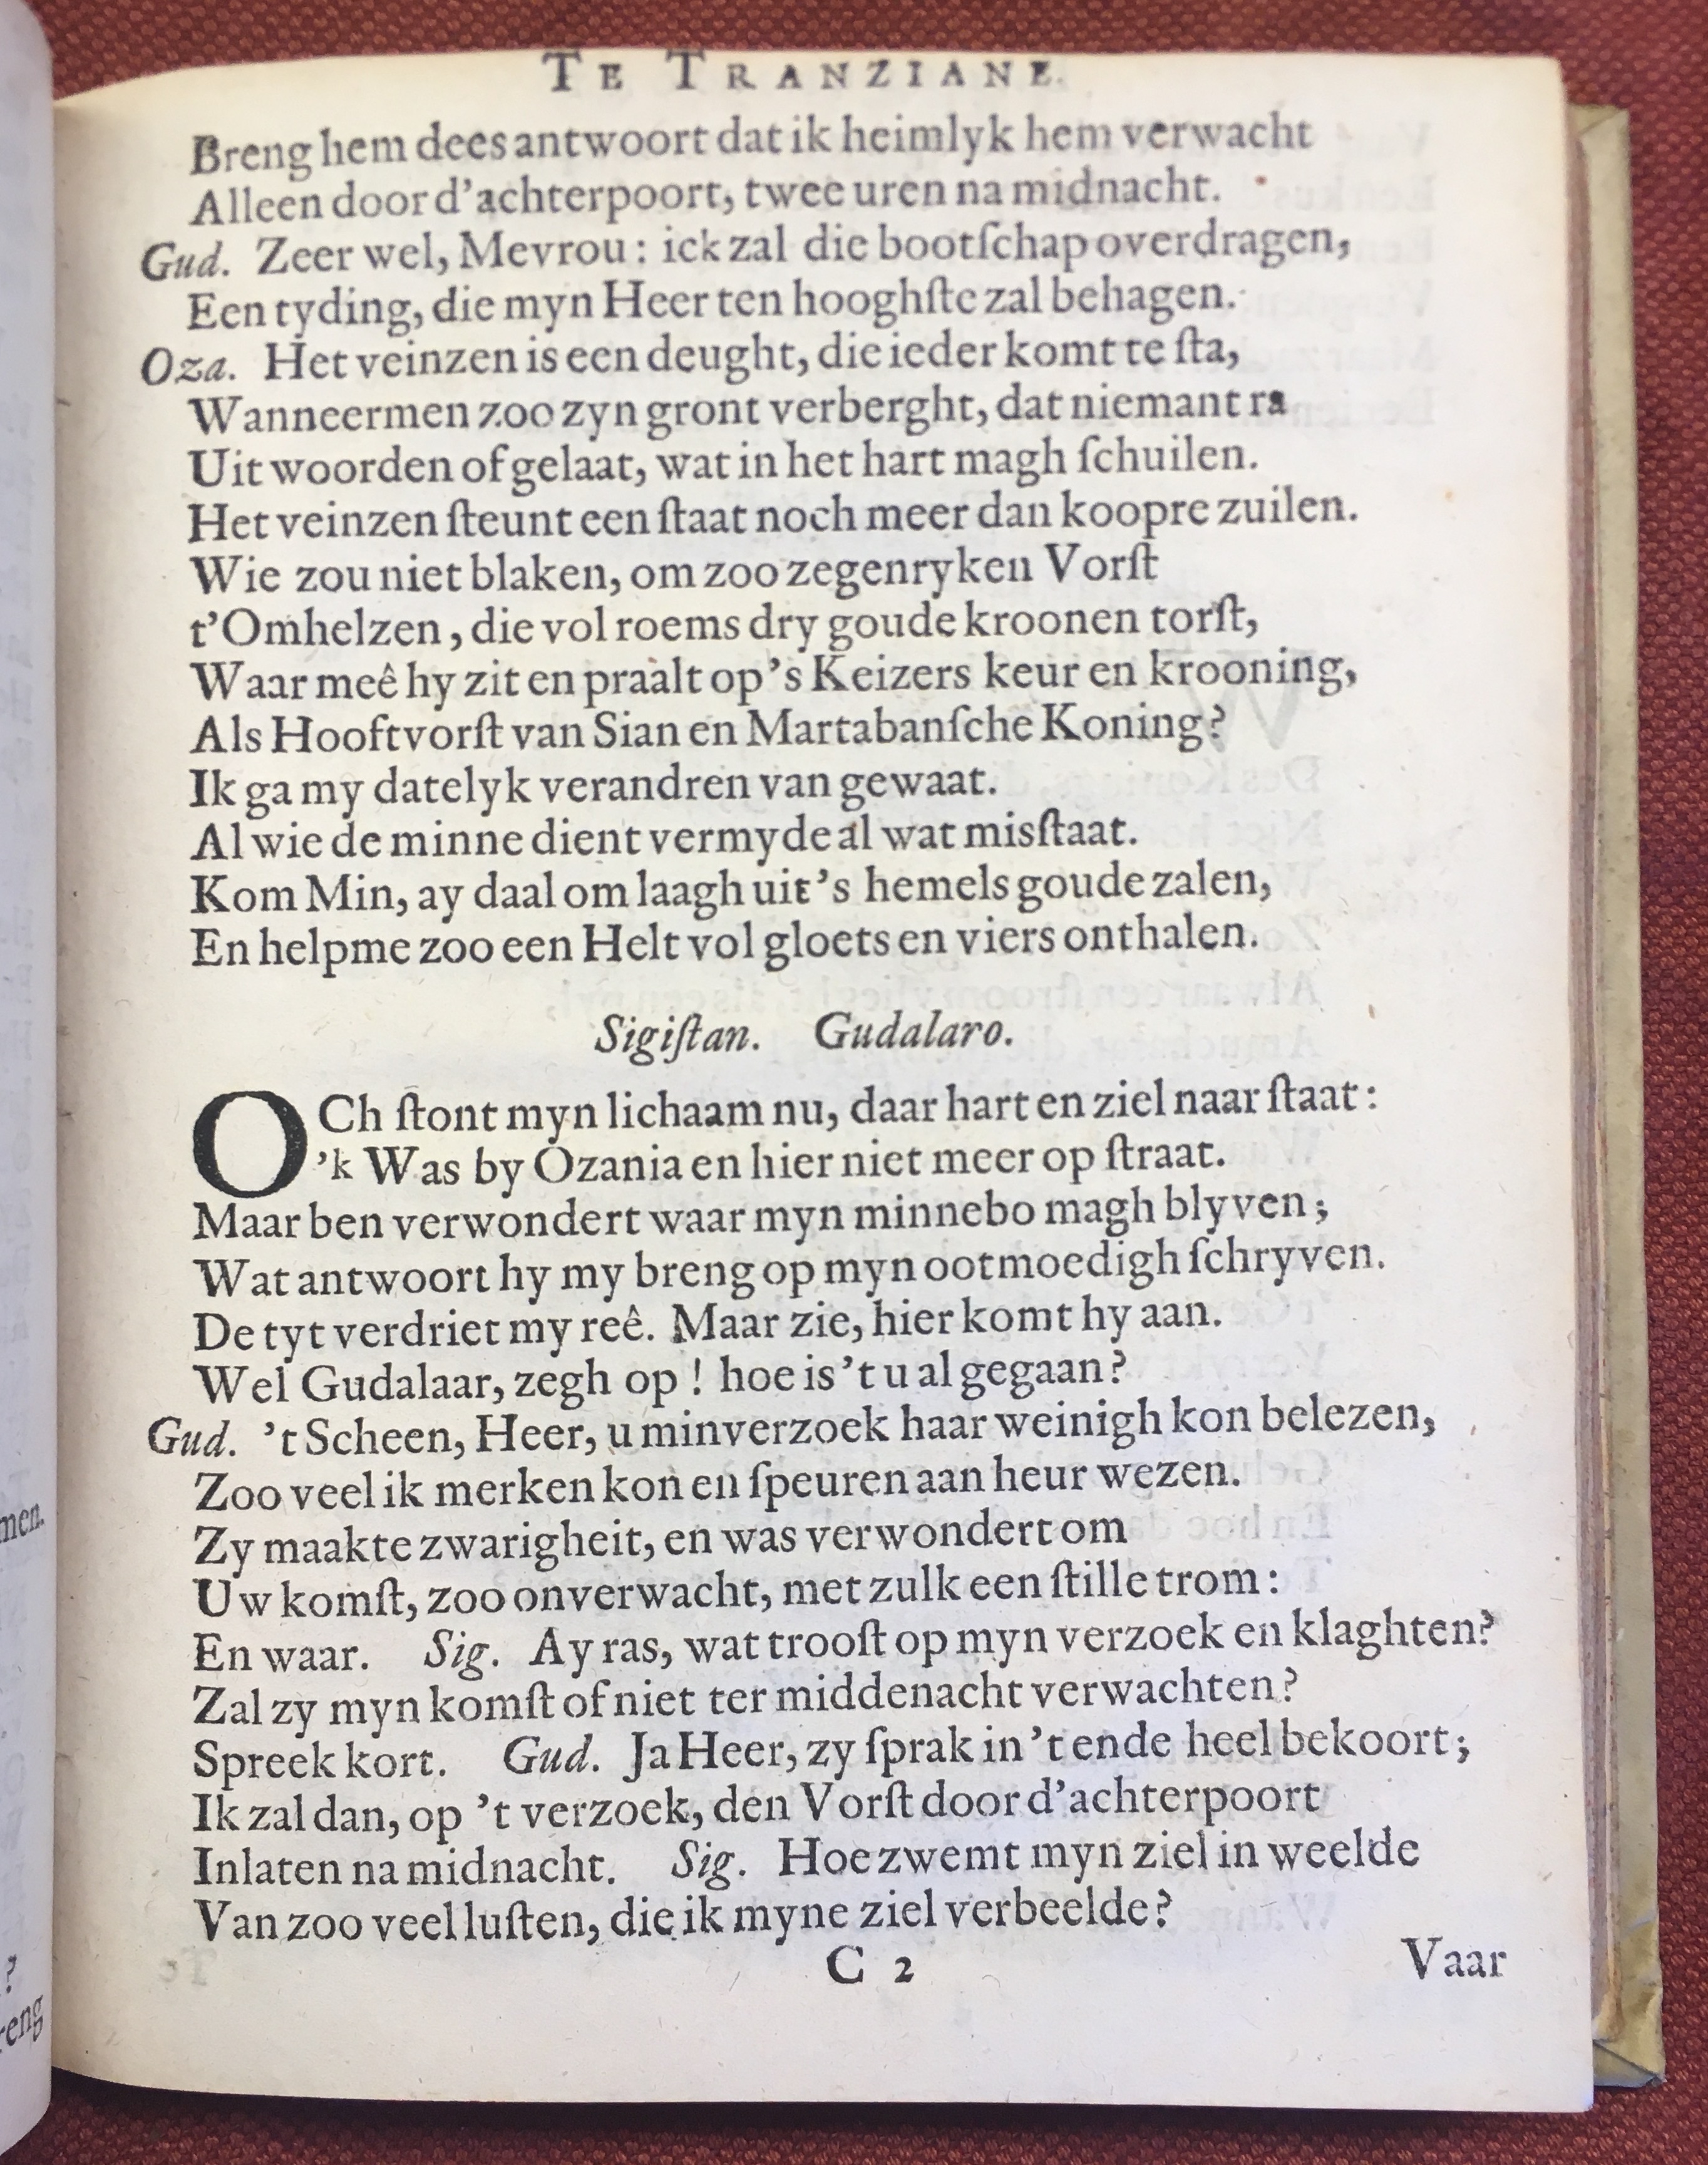 TE TRANZIANE.
Breng hem dees antwoort dat ik heimlyk hem verwacht
Alleen door d'achterpoort, twee uren na midnacht.
Gud. Zeer wel, Mevrou: ick zal die bootſchap overdragen,
Een tyding, die myn Heer ten hooghſte zal behagen.
Oza. Het veinzen is een deught, die ieder komt te ſta,
Wanneermen zoo zyn gront verberght, dat niemant ra
Uit woorden of gelaat, wat in het hart magh ſchuilen.
Het veinzen ſteunt een ſtaat noch meer dan koopre zuilen.
Wie zou niet blaken, om zoo zegenryken Vorſt
t'Omhelzen, die vol roems dry goude kroonen torſt,
Waar meê hy zit en praalt op 's Keizers keur en krooning,
Als Hooftvorſt van Sian en Martabanſche Koning?
Ik ga my datelyk verandren van gewaat.
Al wie de minne dient vermyde al wat misſtaat.
Kom Min, ay daal om laagh uit 's hemels goude zalen,
En helpme zoo een Helt vol gloets en viers onthalen.
Sigiſtan. Gudalaro.
OCh ſtont myn lichaam nu, daar hart en ziel naar ſtaat:
'k Was by Ozania en hier niet meer op ſtraat.
Maar ben verwondert waar myn minnebo magh blyven;
Wat antwoort hy my breng op myn ootmoedigh ſchryven.
De tyt verdriet my reê. Maar zie, hier komt hy aan.
Wel Gudalaar, zegh op! hoe is 't u al gegaan?
Gud. 't Scheen, Heer, u minverzoek haar weinigh kon belezen,
Zoo veel ik merken kon en ſpeuren aan heur wezen.
Zy maakte zwarigheit, en was verwondert om
Uw komſt, zoo onverwacht, met zulk een ſtille trom:
En waar. Sig. Ay ras, wat trooſt op myn verzoek en klaghten?
Zal zy myn komſt of niet ter middenacht verwachten?
Spreek kort. Gud. Ja Heer, zy ſprak in 't ende heel bekoort;
Ik zal dan, op 't verzoek, den Vorſt door d'achterpoort
Inlaten na midnacht. Sig. Hoe zwemt myn ziel in weelde
Van zoo veel luſten, die ik myne ziel verbeelde?
C 2 Vaar
men.
?
reng